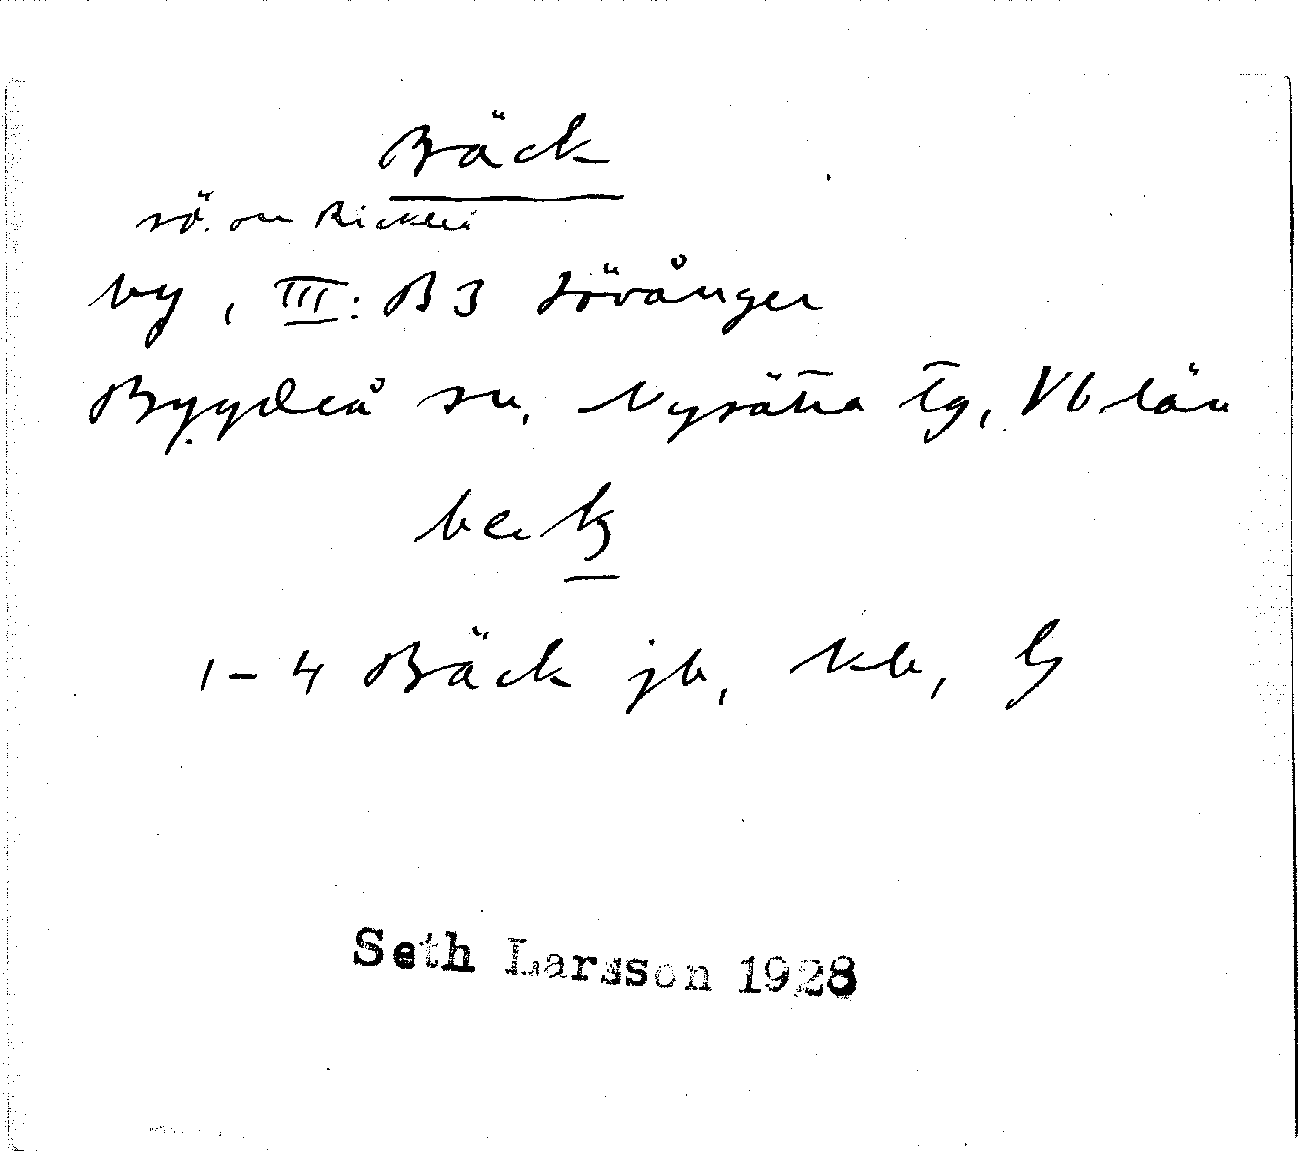 Bäck
sö. om Rickleå
by, III: B3 Lövånger
Bygdeå sn, Nysätra tg, Vb län
1-4 Bäck jb, kb,
Seth Larsson 1928